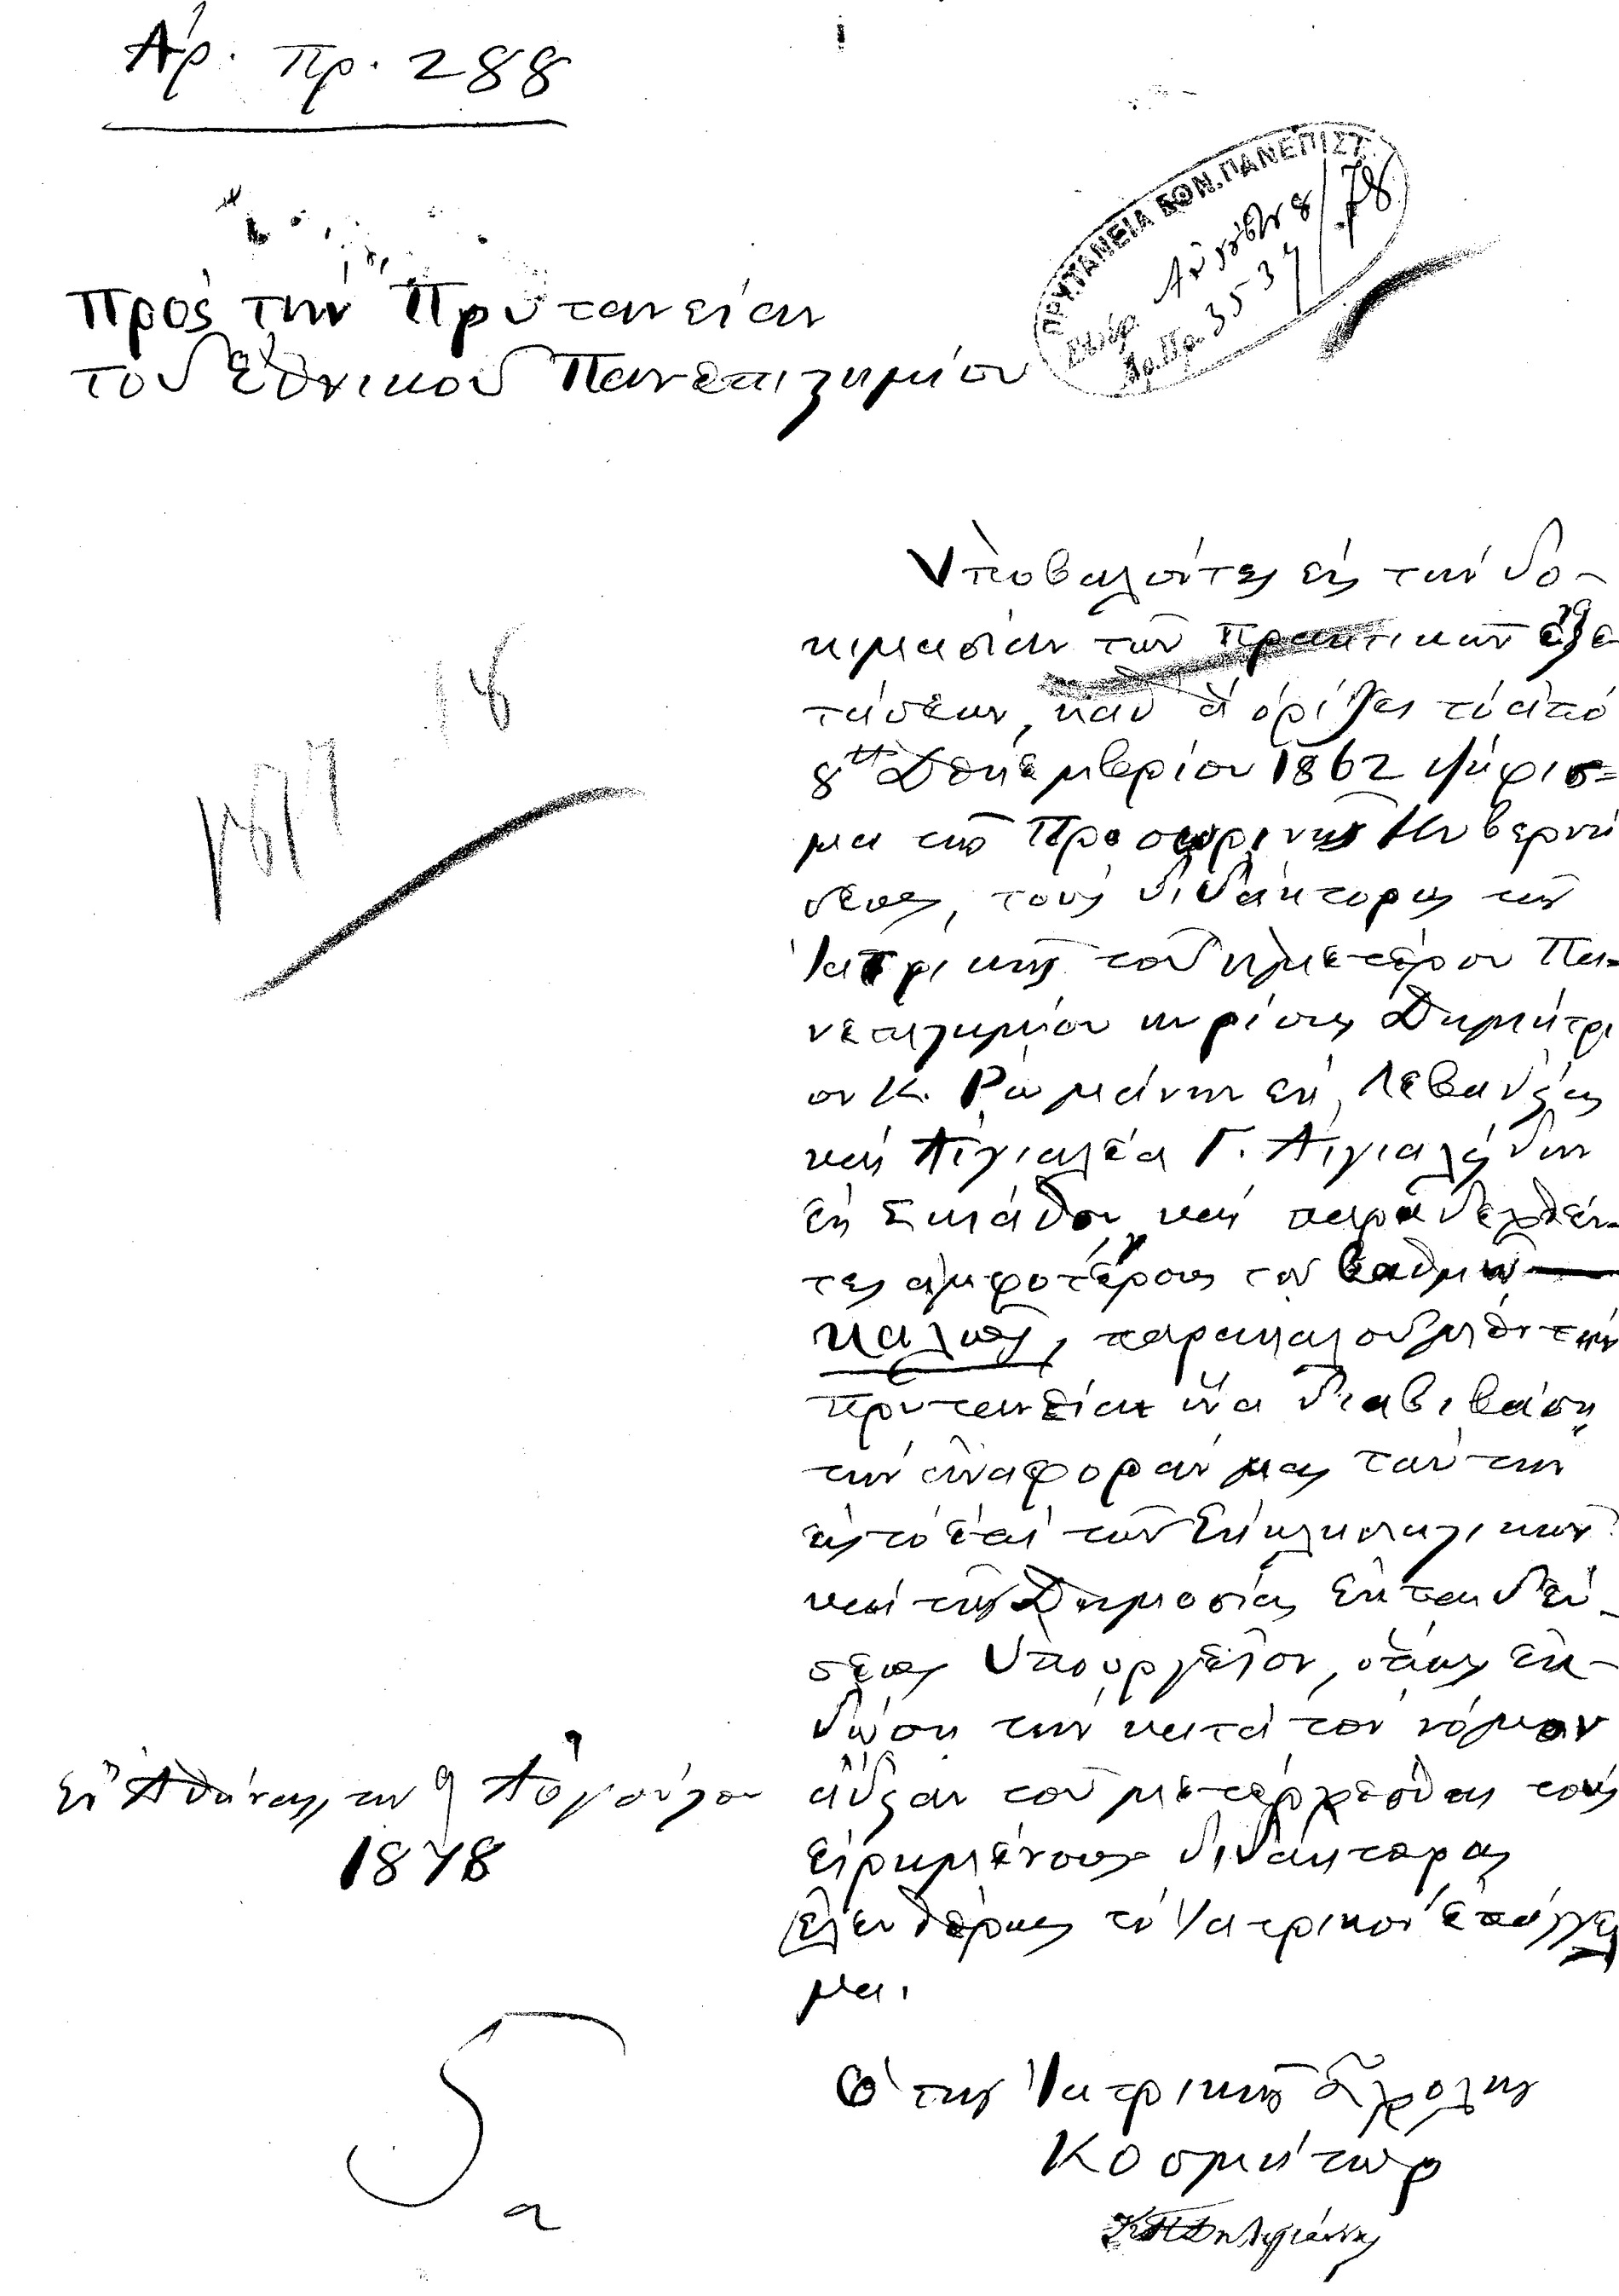 Ἀρ. πρ. 288
ΠΡΥΤΑΝΕΙΑ ΕΘΝ. ΠΑΝΕΠΙΣΤ.
Αὐγούστου 8/78
Ἀρ. Πρ. 3537
Πρὸς τὴν Πρυτανείαν
τοῦ Ἐθνικοῦ Πανεπιστημίου
Ὑποβαλόντες εἰς τὴν δο-
κιμασίαν τῶν πρακτικῶν ἐξε
τάσεων, καθ' ἃ ὁρίζει τὸ ἀπὸ
8 Δεκεμβρίου 1862 ψήφισ=
μα τῆς Προσωρινῆς Κυβερνή
σεως, τοὺς διδάκτορας τῆς
Ἰατρικῆς τοῦ ἡμετέρου Πα=
νεπιστημίου κυρίους Δημήτρι
ον Κ. Ρωμάνην ἐκ Λεβαδείας
καὶ Αἰγιαλέα Γ. Αἰγιαλείδην
ἐκ Σκιάθου καὶ παραδεχθέν-
τες ἀμφοτέρους τῷ βαθμῷ
καλῶς, παρακαλοῦμεν τὴν
πρυτανείαν ἵνα διαβιβάσῃ
τὴν ἀναφοράν μας ταύτην
εἰς τὸ ἐπὶ τῶν Ἐκκλησιαστικῶν
καὶ τῆς Δημοσίας Ἐκπαιδεύ-
σεως Ὑπουργεῖον, ὅπως ἐκ-
δώσῃ τὴν κατὰ τὸν νόμον
ἄδειαν τοῦ μετέρχεσθαι τοὺς
εἰρημένους διδάκτορας
ἐλευθέρως τὸ Ἰατρικὸν ἐπάγγελ
μα.
Ἐν Ἀθήναις, τῇ 9 Αὐγούστου
1878
Ὁ τῆς Ἰατρικῆς Σχολῆς
Κοσμήτωρ